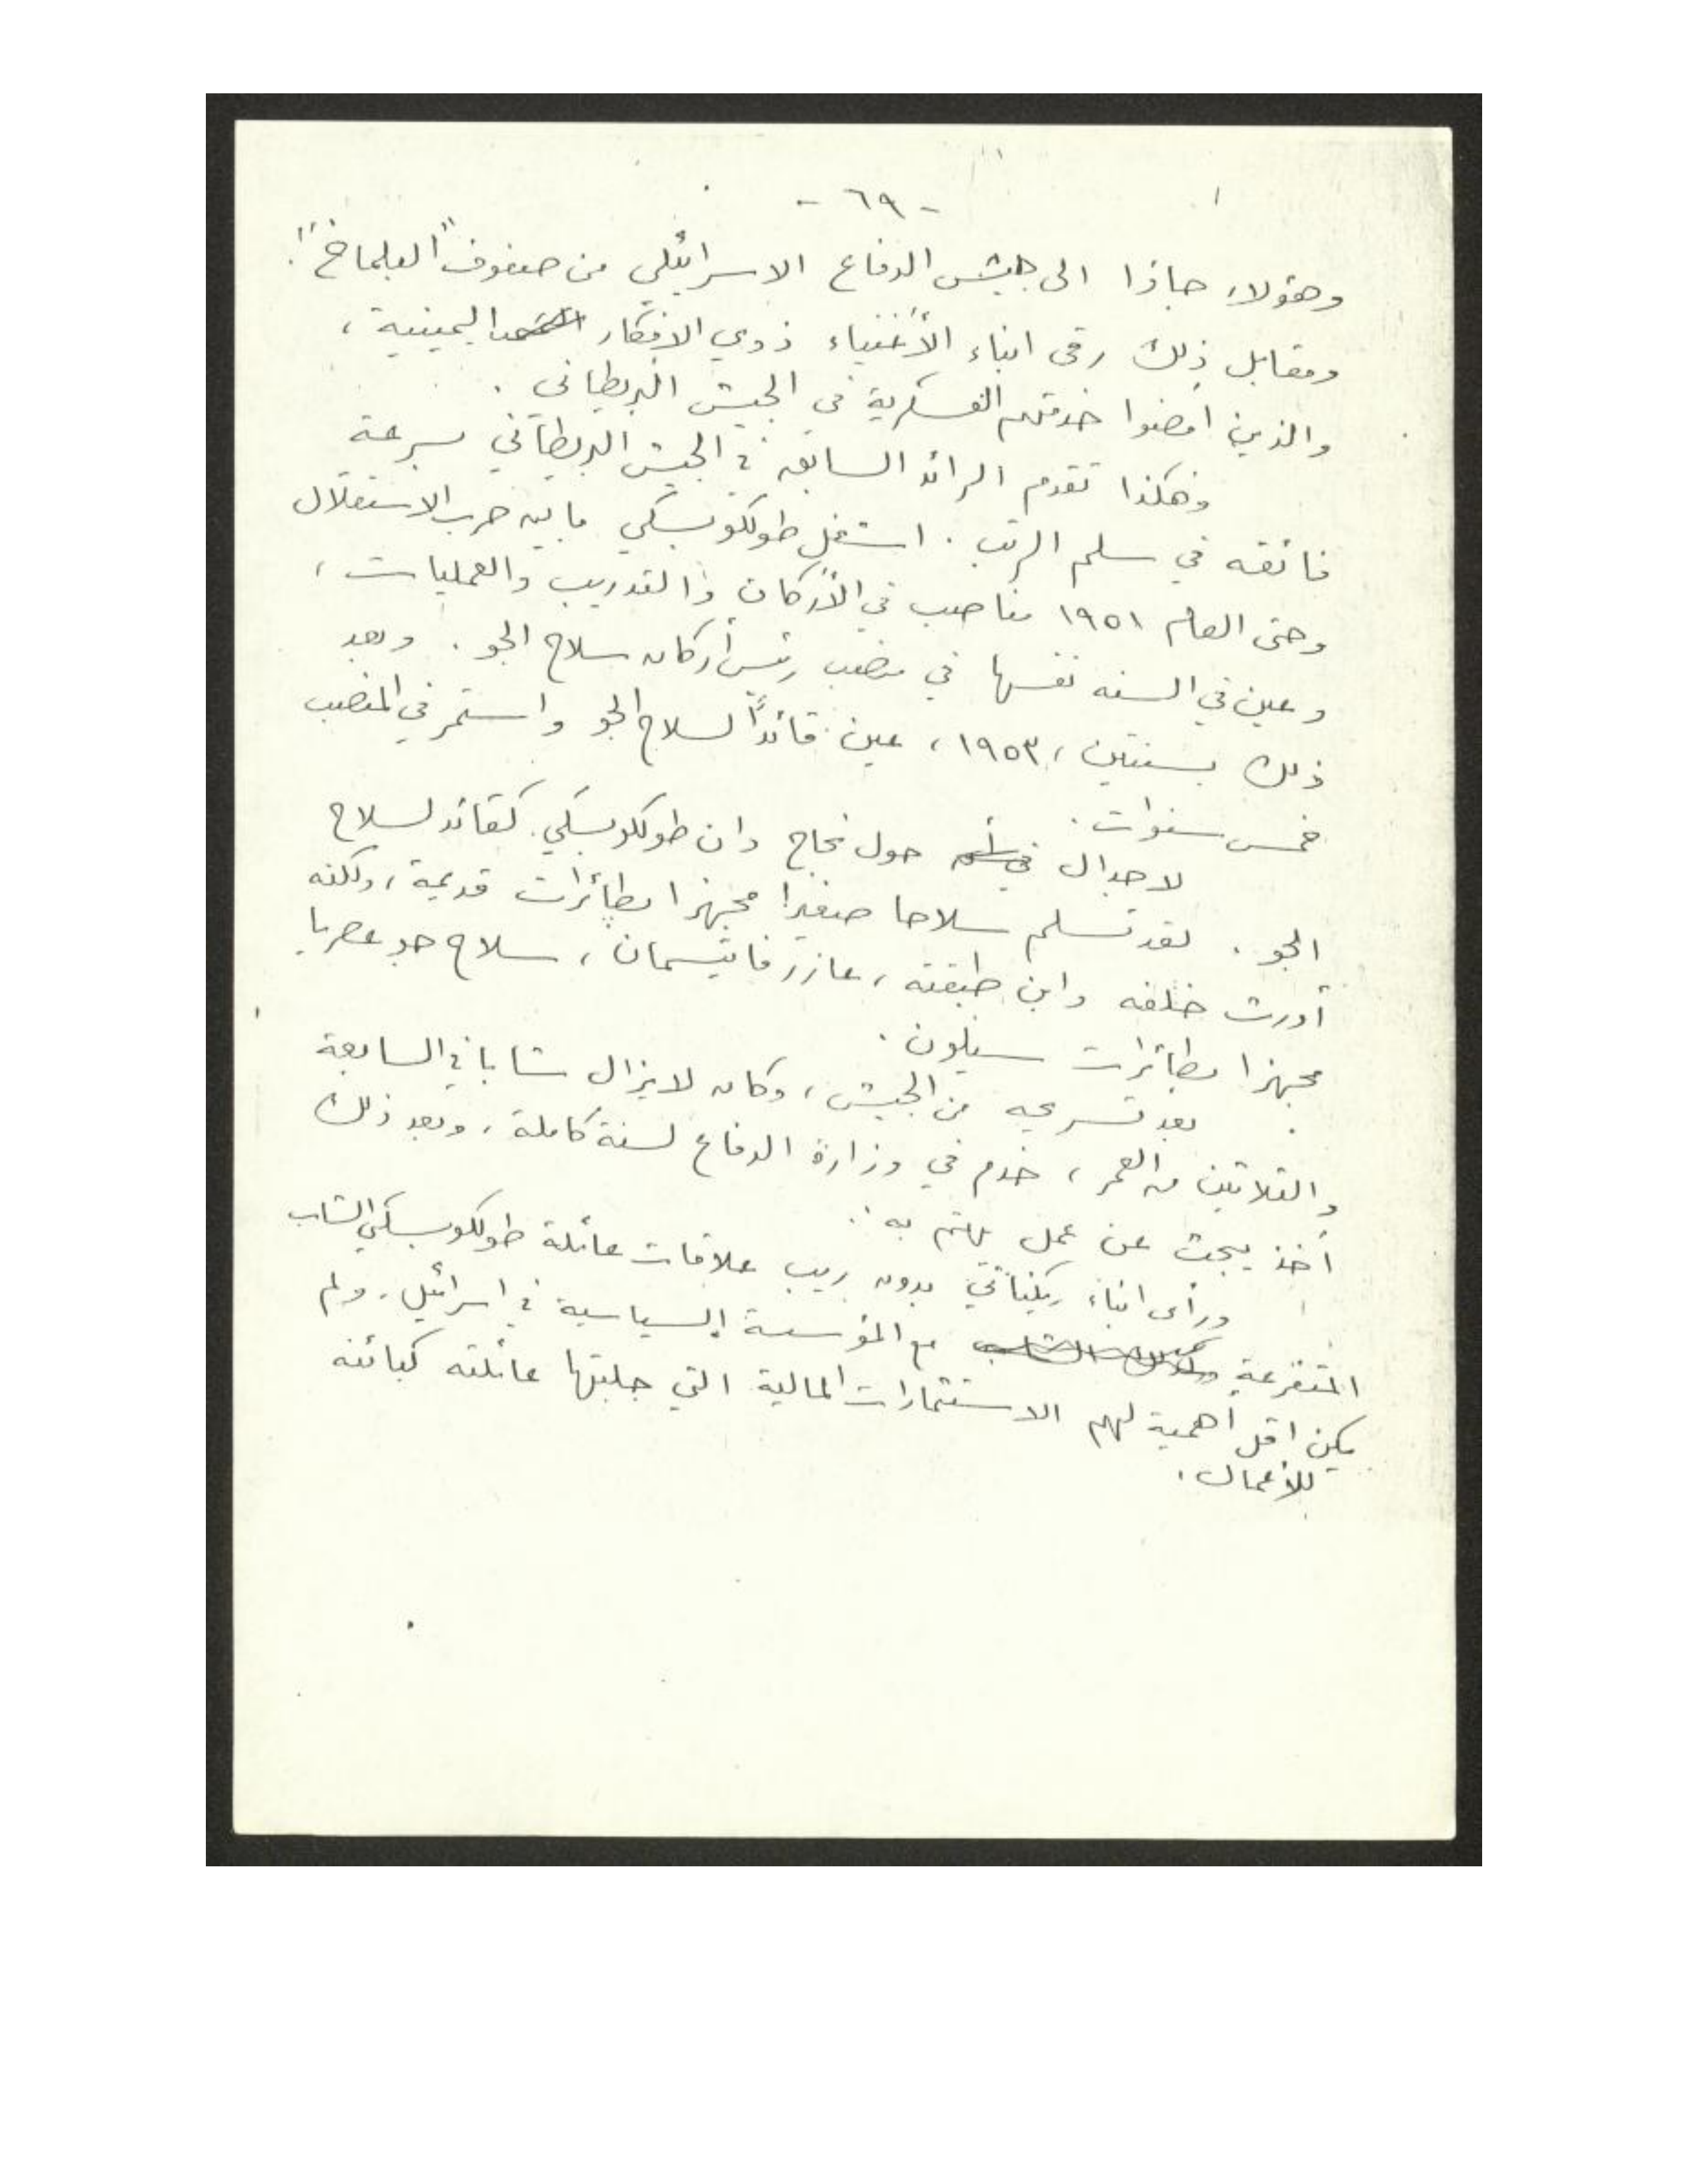 - ٦٩ -
وهؤلاء جاؤا الى جيش الدفاع الاسرائيلي من صفوف "البلماخ".
ومقابل ذلك رقى ابناء الأغنياء ذوي الافكار اليمينية،
والذين امضوا خدمتهم العسكرية في الجيش البريطاني.
وهكذا تقدم الرائد السابق في الجيش البريطاني بسرعة
فائقه في سلم الرتب. استغل طولكوبسكي ما بين حرب الاستقلال
وحتى العام ١٩٥١ مناصب في الأركان والتدريب والعمليات،
وعين في السنه نفسها في منصب رئيس أركان سلاح الجو. وبعد
ذلك بسنتين، ١٩٥٣، عين قائداً لسلاح الجو واستمر في المنصب
خمس سنوات.
لا جدال حول نجاح دان طولكوبسكي كقائد لسلاح
الجو. لقد تسلم سلاحا صغيرا مجهزا بطائرات قديمة، ولكنه
أورث خلفه وابن طبقته، عازر فايتسمان، سلاح جو عصريا
مجهزا بطائرات سيلون.
بعد تسريحه من الجيش، وكان لا يزال شابا في السابعة
والثلاثين من العمر، خدم في وزارة الدفاع لسنة كاملة، وبعد ذلك
أخذ يبحث عن عمل يهتم به.
ورأى ابناء ريكناتي بدون ريب علاقات عائلة طولكوبسكي الشاب
المتفرعة مع المؤسسة السياسية في اسرائيل. ولم
يكن اقل أهمية لهم الاستثمارات المالية التي جلبتها عائلته كبائنه
للأعمال.